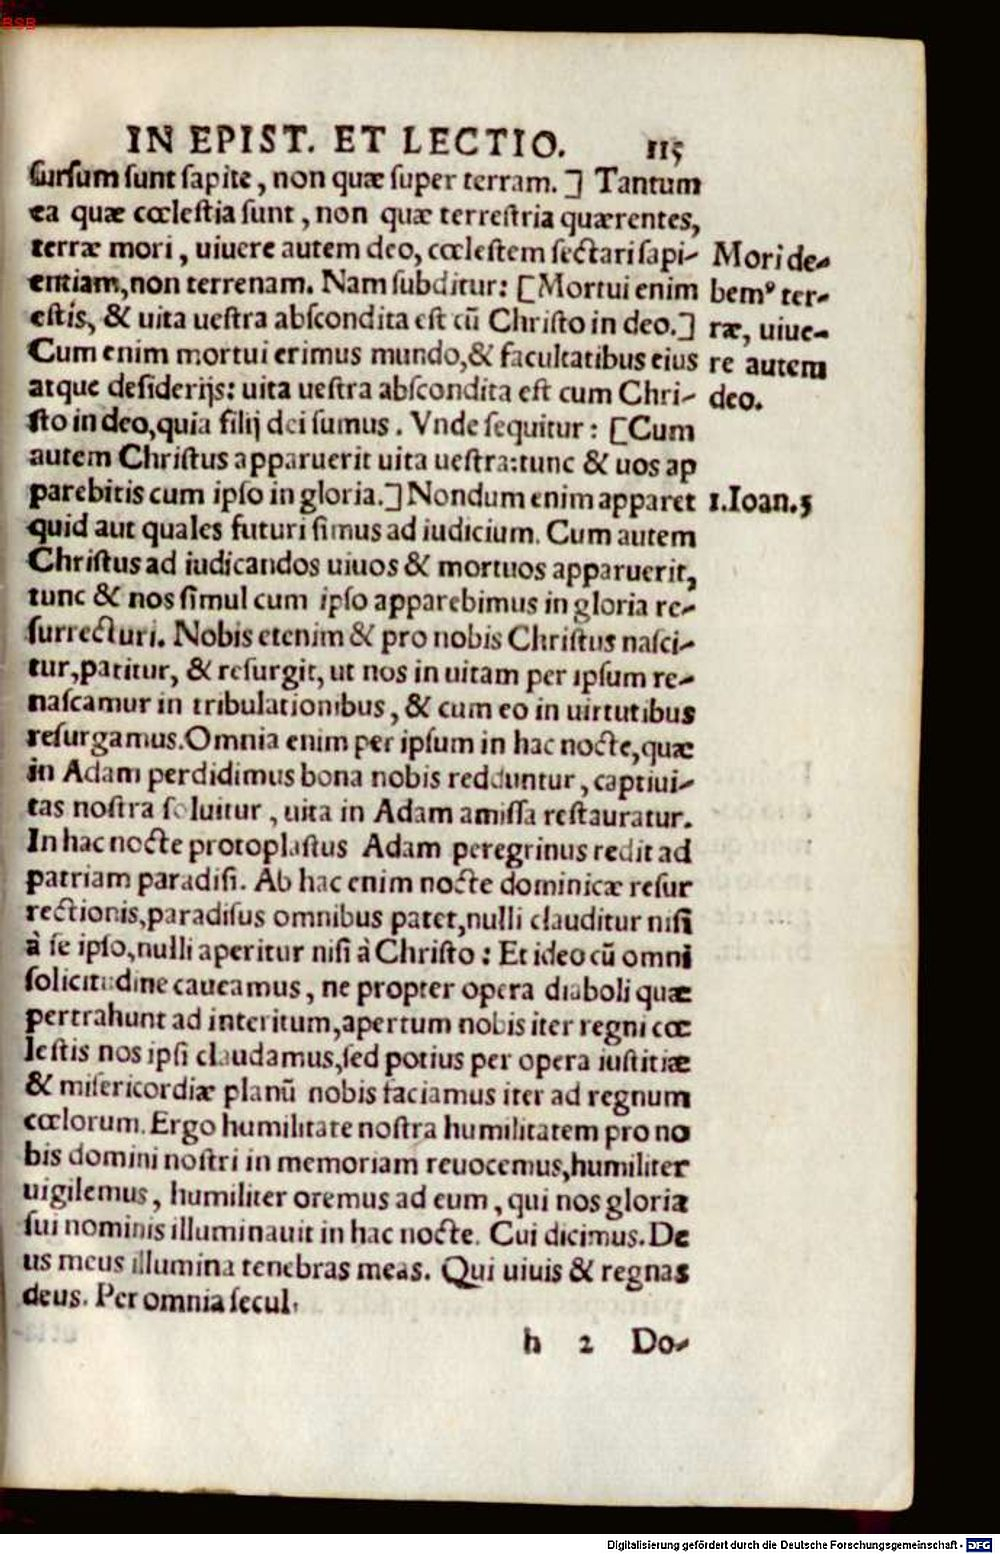 BSB
IN EPIST. ET LECTIO. 115
sursum sunt sapite, non quæ super terram.] Tantum
ea quæ cœlestia sunt, non quæ terrestria quærentes,
terræ mori, uiuere autem deo, cœlestem sectari sapi-
entiam, non terrenam. Nam subditur: [Mortui enim
estis, & uita uestra abscondita est cū Christo in deo.]
Cum enim mortui erimus mundo, & facultatibus eius
atque desiderijs: uita uestra abscondita est cum Chri-
sto in deo, quia filij dei sumus. Vnde sequitur: [Cum
autem Christus apparuerit uita uestra: tunc & uos ap
parebitis cum ipso in gloria.] Nondum enim apparet
quid aut quales futuri simus ad iudicium. Cum autem
Christus ad iudicandos uiuos & mortuos apparuerit,
tunc & nos simul cum ipso apparebimus in gloria re-
surrecturi. Nobis etenim & pro nobis Christus nasci-
tur, patitur, & resurgit, ut nos in uitam per ipsum re-
nascamur in tribulationibus, & cum eo in uirtutibus
resurgamus. Omnia enim per ipsum in hac nocte, quæ
in Adam perdidimus bona nobis redduntur, captiui-
tas nostra soluitur, uita in Adam amissa restauratur.
In hac nocte protoplastus Adam peregrinus redit ad
patriam paradisi. Ab hac enim nocte dominicæ resur
rectionis, paradisus omnibus patet, nulli clauditur nisi
à se ipso, nulli aperitur nisi à Christo: Et ideo cū omni
solicitudine caueamus, ne propter opera diaboli quæ
pertrahunt ad interitum, apertum nobis iter regni cœ
lestis nos ipsi claudamus, sed potius per opera iustitiæ
& misericordiæ planū nobis faciamus iter ad regnum
cœlorum. Ergo humilitate nostra humilitatem pro no
bis domini nostri in memoriam reuocemus, humiliter
uigilemus, humiliter oremus ad eum, qui nos gloria
sui nominis illuminauit in hac nocte. Cui dicimus. De
us meus illumina tenebras meas. Qui uiuis & regnas
deus. Per omnia secul.
Mori de-
bem⁹ ter-
ræ, uiue-
re autem
deo.
1.Ioan.3
h 2 Do-
Digitalisierung gefördert durch die Deutsche Forschungsgemeinschaft - DFG